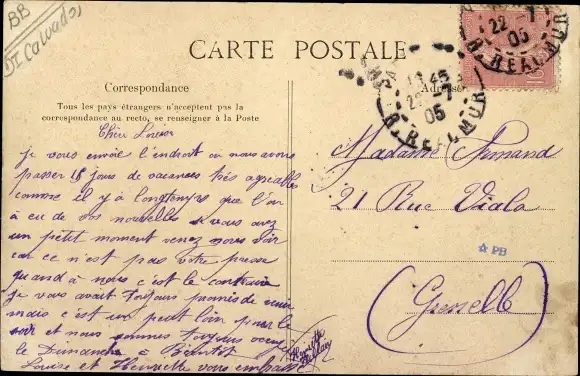 BB
DI Calvados
CARTE POSTALE
Correspondance
Tous les pays étrangers n'acceptent pas la
correspondance au recto, se renseigner à la Poste
je vous envoie l'endroit ou nous avons
passer 15 jours de vacances très agréables
comme il y à longtemps que l'on
à eu de vos nouvelles si vous avez
un petit moment venez nous voir
car ce n'est pas votre presse
quand à nous c'est le contraire
je vous avait toujours promis de venir
mais c'est un petit loin pour le
soir et nous sommes toujours
le Dimanche a Bientôt
Louise et Henriette vous embrasse
22
05
R. REAUMUR
45
05
R. REAUMUR
Adresse
Madame Armand
21 Rue Viala
PB
(Grenelle)